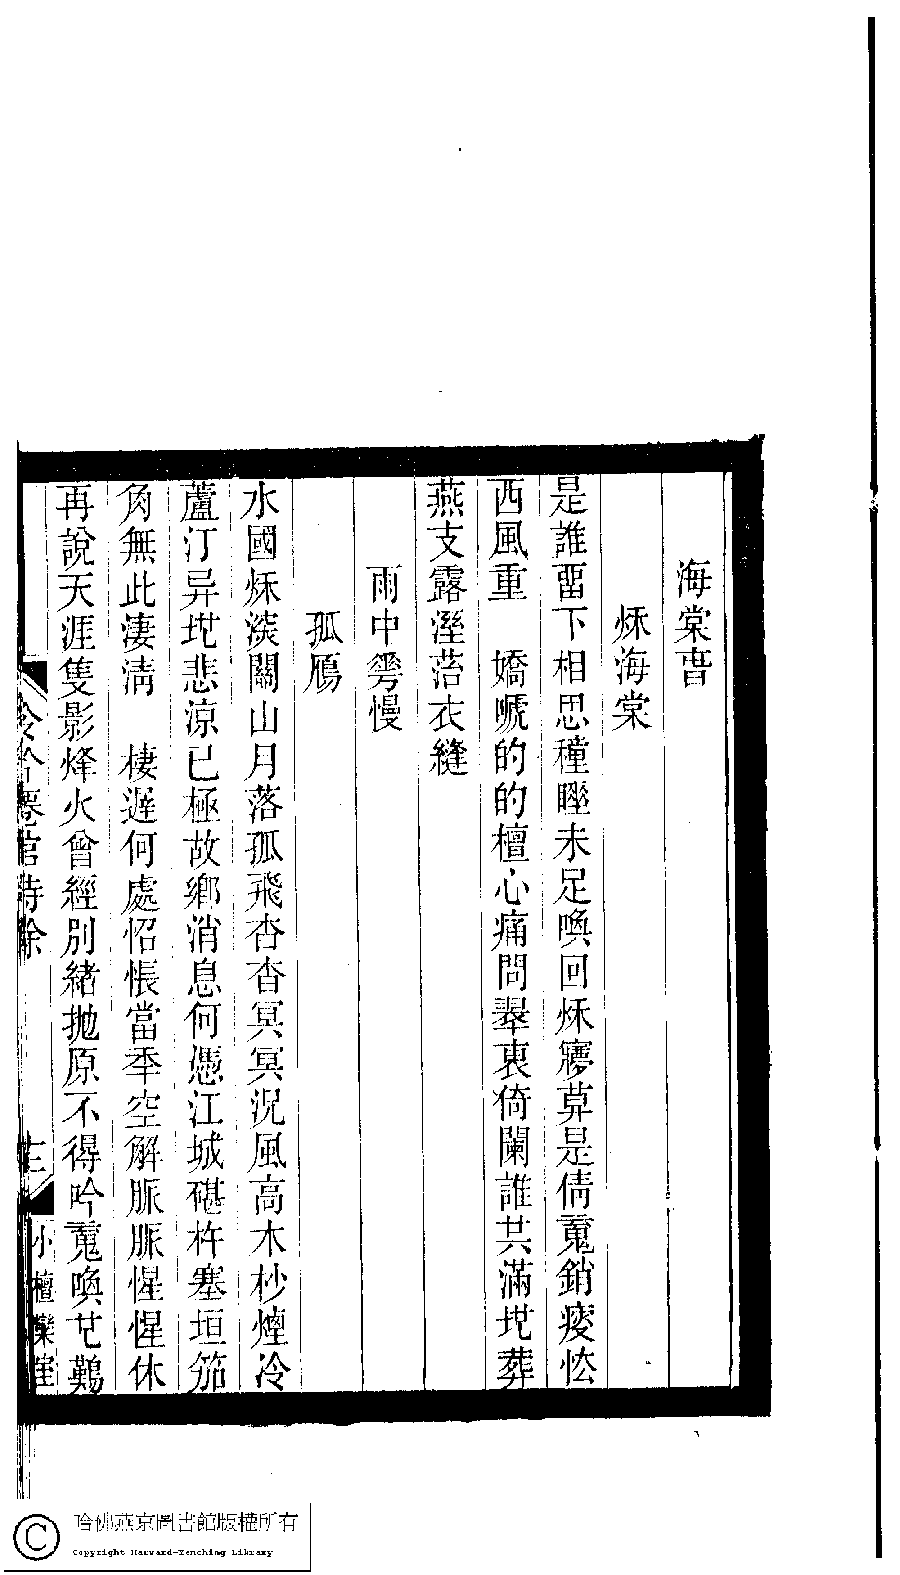 海棠春
秌海棠
是誰畱下相思種瞇未足喚回秌㝱算是倩䰟銷㾭恡
西風重　嬌嗁的的檀心痛問翠裏倚闌誰共滿地葬
燕支露溼萿衣縫
雨中雩慢
孤鴈
水國秌淡關山月落孤飛杳杳冥冥況風高木杪煙冷
蘆汀异地悲涼已極故鄉消息何憑江城碪杵塞垣笳
角無此淒清　棲遲何處怊悵當秊空解脈脈惺惺休
再說天涯隻影烽火曾經別緒拋原不得吟䰟喚芒鷄
詩餘
小檀欒室
哈佛燕京圖書館版權所有
Copyright Harvard-Yenching Library